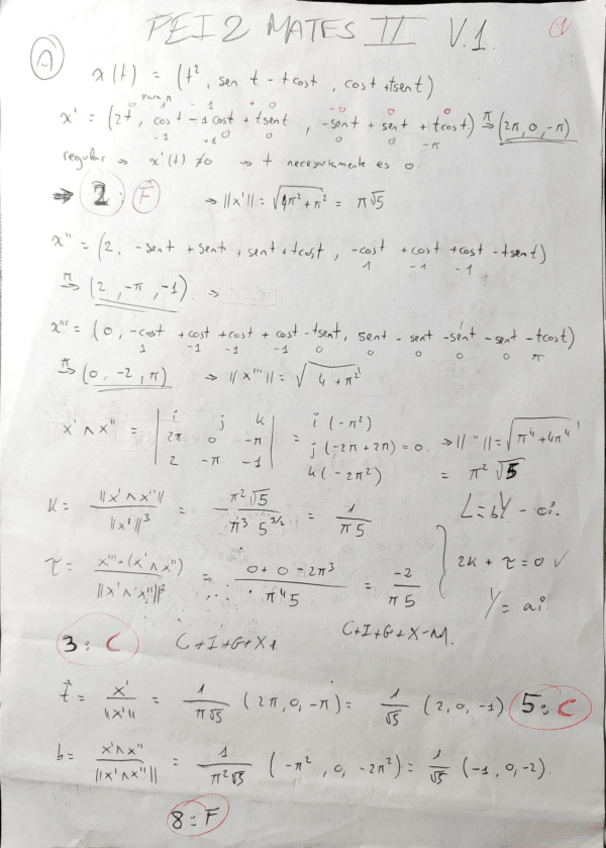 PEI 2 MATES II V.1.
1
A
x(t) = (t², sen t - t cost, cost + t sent)
para π
x' = (2t, cost - 1cost + tsent, -sent + sent + tcost) ⇒π (2π, 0, -π)
-1 +1 0 0 0 -π
regular → x'(t) ≠ 0 → t necesariamente es 0.
⇒ 2: F → ||x'|| = √(4π²+π²) = π√5
x'' = (2, -sent + sent + sent + tcost, -cost + cost + cost - tsent)
1 -1 -1
⇒π (2, -π, -1). →
x''' = (0, -cost + cost + cost + cost - tsent, sent - sent - sent - sent - tcost)
1 -1 -1 -1 0 0 0 0 0 π
⇒π (0, -2, π) → ||x'''|| = √(4 + π²)
x' ∧ x'' = | i j k | = i (-π²)
| 2π 0 -π | j (-2π + 2π) = 0 → || " || = √(π⁴ + 4π⁴)
| 2 -π -1 | k (-2π²) = π²√5
K = ||x' ∧ x''|| / ||x'||³ = π²√5 / π³ 5^3/2 = 1 / π5
L = bY - ci.
τ = x''' · (x' ∧ x'') / ||x' ∧ x''||² = 0 + 0 - 2π³ / π⁴5 = -2 / π5
2k + τ = 0 ✓
Y = ai
3: C C+I+G+X1 C+I+G+X-M.
t = x' / ||x'|| = 1/π√5 (2π, 0, -π) = 1/√5 (2, 0, -1) 5: C
b = x' ∧ x'' / ||x' ∧ x''|| = 1/π²√5 (-π², 0, -2π²) = 1/√5 (-1, 0, -2).
8: F